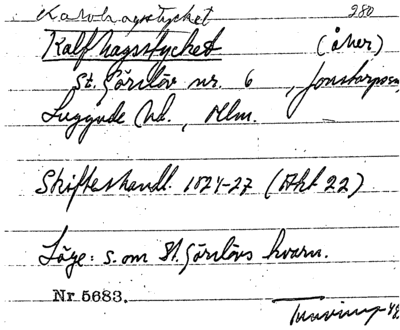 Kalvhagsstycket 280
Kalfhagsstycket (åker)
St. Görslöv nr. 6, Jonstorps sn
Luggude hd., Mlm.
Skifteshandl. 1824-27 (Akt 22)
Läge: s. om St. Görslövs kvarn.
Nr 5683.